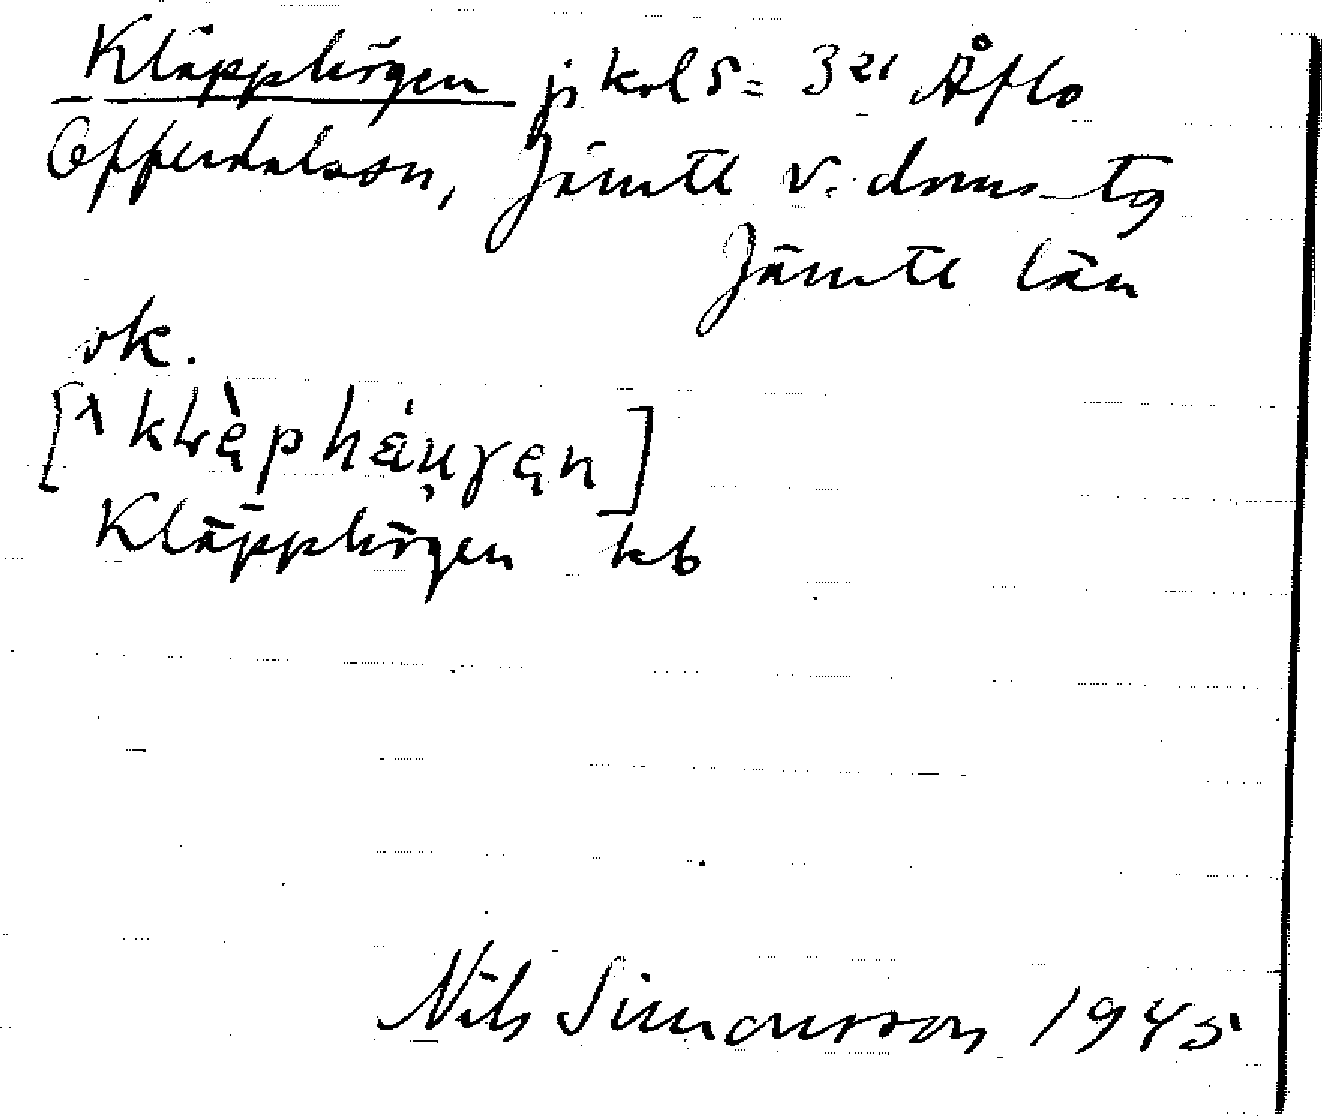 Kläpphögen jkol5= 321 Åflo
Offerdalssn, Jämtl v. doms-tg
Jämtl län
vk.
Kläpphögen kb
Nils Simonsson 1945